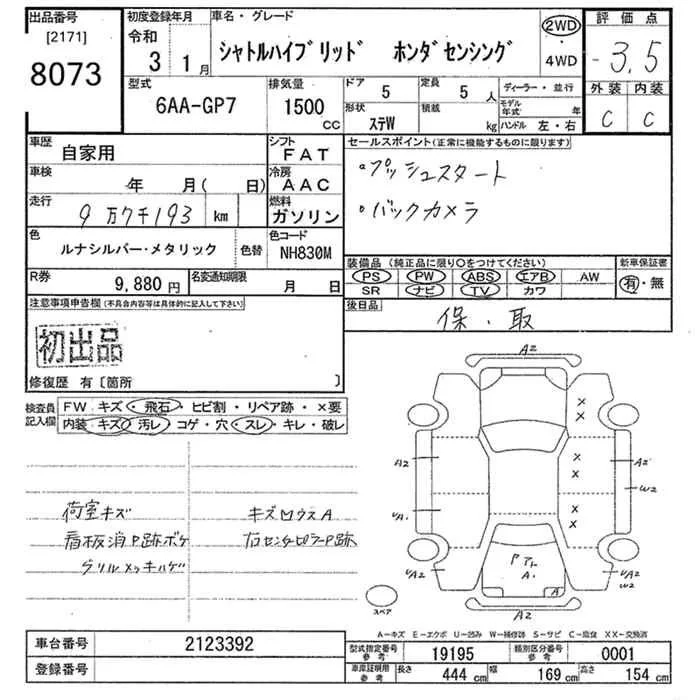 出品番号 初度登録年月 車名・グレード 評価点
[2171] 令和 2WD
8073 3 1月 シャトルハイブリッド ホンダセンシング ・ - 3.5
4WD
型式 排気量 ドア 5 定員 5 人 ディーラー・並行 外装 内装
6AA-GP7 1500 cc 形状 ステW 積載 kg モデル年式 年 C C
ハンドル 左・右
車歴 自家用 シフト FAT セールスポイント(正常に機能するものに限ります)
車検 年 月( 日) 冷房 AAC 。プッシュスタート
走行 9万7千193 km 燃料 ガソリン 。バックカメラ
色 ルナシルバー・メタリック 色替 色コード NH830M
装備品(純正品に限り○をつけてください) 新車保証書
R券 9,880円 名変通知期限 月 日 PS PW ABS エアB AW 有・無
SR ナビ TV カワ
注意事項申告欄(不具合内容等は具体的に記入して下さい) 後日品 保・取
初出品
修復歴 有〔箇所 〕
検査員記入欄 FW キズ・飛石・ヒビ割・リペア跡・×要
内装 キズ 汚レ コゲ・穴・スレ・キレ・破レ
荷室キズ キズロウスA
看板消P跡ボケ 右センターピラーP跡
グリルメッキハゲ
A2
A2 A2
W2
A2 W2
A2
スペア
A-キズ E-エクボ U-凹み W-補修跡 S-サビ C-腐食 XX-交換済
車台番号 2123392
登録番号
型式指定番号 参考 19195 類別区分番号 参考 0001
車庫証明用 参考 長さ 444 cm 幅 169 cm 高さ 154 cm